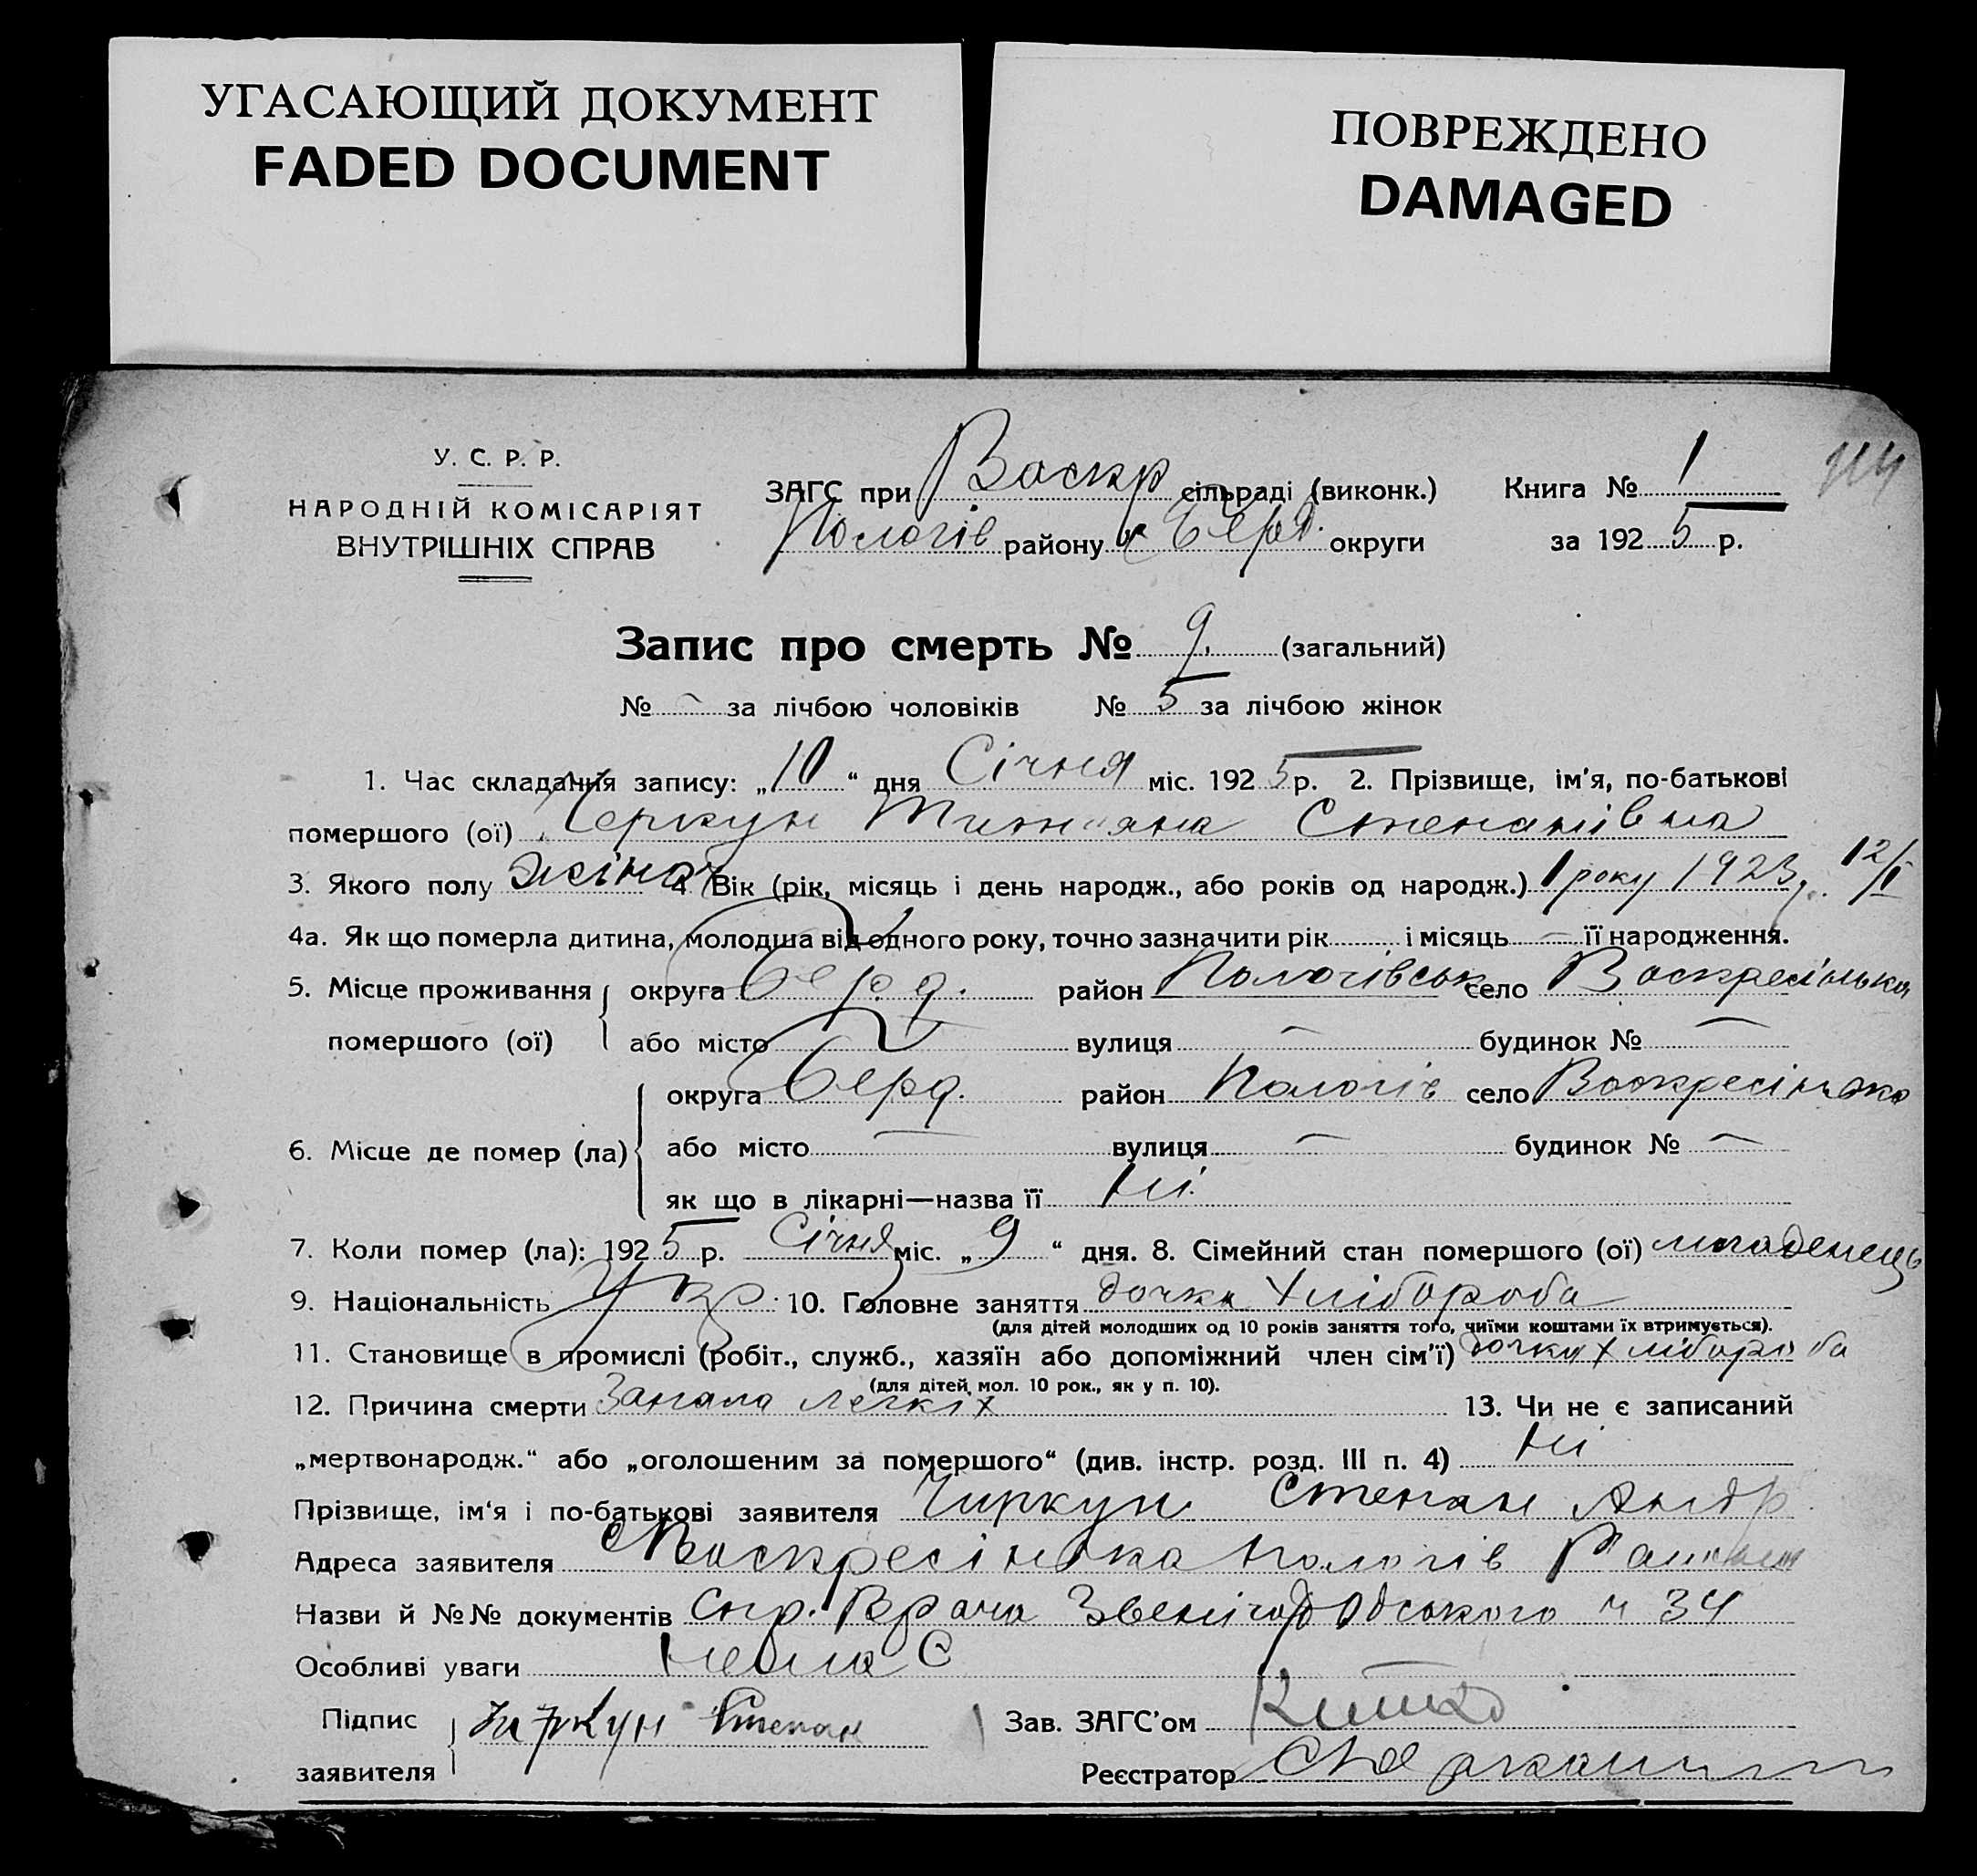 УГАСАЮЩИЙ ДОКУМЕНТ
FADED DOCUMENT
ПОВРЕЖДЕНО
DAMAGED
У. С. Р. Р.
НАРОДНІЙ КОМІСАРІЯТ
ВНУТРІШНІХ СПРАВ
ЗАГС при Воскр сільраді (виконк.)
Пологів району Берд. округи
Книга № 1
за 1925 р.
Запис про смерть № 9. (загальний)
№ - за лічбою чоловіків № 5 за лічбою жінок
1. Час складання запису: „10“ дня Січня міс. 1925 р. 2. Прізвище, ім'я, по-батькові
помершого (ої) Черкун Титяна Степанівна
3. Якого полу жіноч 4. Вік (рік, місяць і день народж., або років од народж.) 1 року 1923 р. 12/I
4а. Як що померла дитина, молодша від одного року, точно зазначити рік і місяць — її народження.
5. Місце проживання помершого (ої) округа Берд. район Пологівськ село Воскресінька
або місто вулиця — будинок № —
6. Місце де помер (ла) округа Берд. район Пологів село Воскресінька
або місто — вулиця — будинок № —
як що в лікарні—назва її Ні.
7. Коли помер (ла): 1925 р. Січня міс. „9“ дня. 8. Сімейний стан помершого (ої) младенець
9. Національність Укр. 10. Головне заняття дочка Хлібороба
(для дітей молодших од 10 років заняття того, чиїми коштами їх втримується).
11. Становище в промислі (робіт., служб., хазяїн або допоміжний член сім'ї) дочка хлібороба
(для дітей мол. 10 рок., як у п. 10).
12. Причина смерти Запала легких 13. Чи не є записаний
„мертвонародж.“ або „оголошеним за помершого“ (див. інстр. розд. III п. 4) Ні
Прізвище, ім'я і по-батькові заявителя Чиркун Степан Андр
Адреса заявителя с Воскресінька Пологів
Назви й №№ документів Спр. Врача Звенігородського ч 34
Особливі уваги Нема Є
Підпис заявителя Чиркун Степан
Зав. ЗАГС'ом
Реєстратор